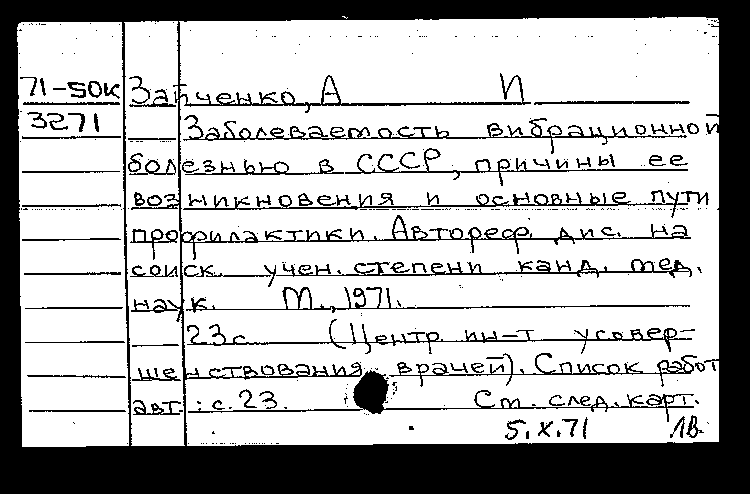 71-50к Зайченко, А И
3271 Заболеваемость вибрационной
болезнью в СССР, причины ее
возникновения и основные пути
профилактики. Автореф. дис. на
соиск. учен. степени канд. мед.
наук. М., 1971.
23с (Центр. ин-т усовер-
шенствования врачей). Список работ
авт.: с. 23. См. след. карт.
5.X.71 1В